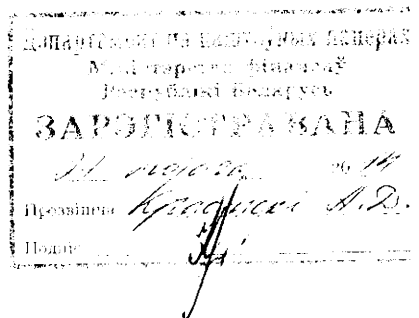 Дэпартамент па каштоўных паперах
Міністэрства фінансаў
Рэспублікі Беларусь
ЗАРЭГІСТРАВАНА
21 лютага 2014
Прозвішча А.Д.
Подпіс